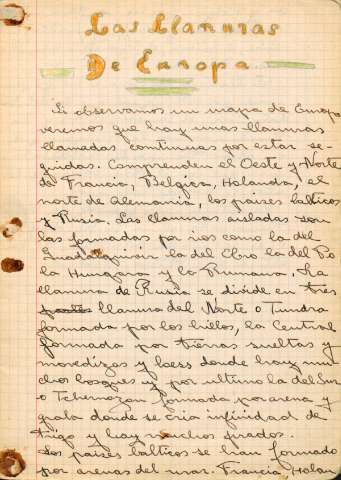 Las Llanuras
De Europa
Si observamos un mapa de Europa
veremos que hay unas llanuras
llamadas continuas por estar se-
guidas. Comprenden el Oeste y Norte
de Francia, Belgica, Holanda, el
norte de Alemania, los paises balticos
y Rusia. Las llanuras aisladas son
las formadas por rios como la del
Guadalquivir la del Ebro la del Po
la Hungara y la Rumana. La
llanura de Rusia se divide en tres
partes llanura del Norte o Tundra
formada por los hielos, la Central
formada por tierras sueltas y
movedizas y loess donde hay mu
chos bosques y por ultimo la del Sur
o Tchernozon formada por arena y
grata donde se cria infinidad de
trigo y hay muchos prados.
Los paises balticos se han formado
por arenas del mar. Francia, Holan